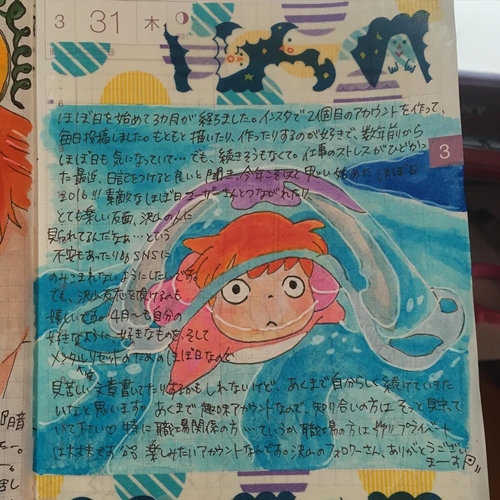 3 31 木
3
ほぼ日を始めて3カ月が経ちました。インスタで2個目のアカウントを作って、
毎日投稿しました。もともと描いたり、作ったりするのが好きで、数年前から
ほぼ日も気になっていて…でも、続きそうもなくて。仕事のストレスがひどかっ
た最近、日記をつけると良いと聞き、今年こそなと思い始めたほぼ日
2016!!! 素敵なほぼ日ユーザーさんとつながれたり、
とても楽しい反面、沢山の人に
見られてるんだなぁ…という
不安もあったり。SNSに
のみこまれないようにしたいです。
でも、沢山反応を頂けるのも
嬉しいです。4月〜も自分の
好きなように、好きなものを、そして
メンタルリセットのためのほぼ日なので
見苦しい文章書いてたりするかもしれないけど、あくまで自分らしく続けていきた
いなと思います。あくまで趣味アカウントなので、知り合いの方はそっと見守って
いて下さい♡ 特に職場関係の方…ていうか職場の方は プライベート
は大丈夫です 楽しみたいアカウントなんです。沢山のフォロワーさん、ありがとうござい
まーす
晴